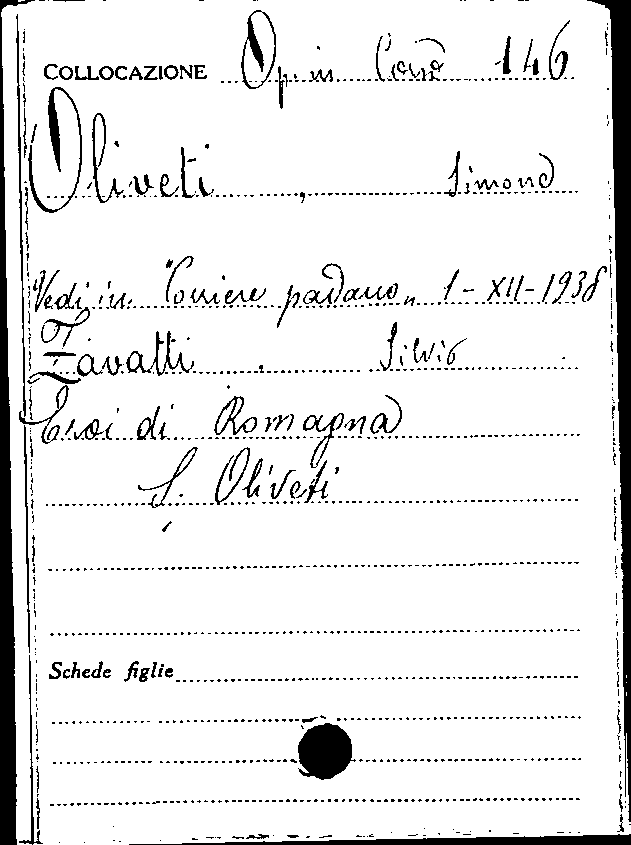 COLLOCAZIONE Op. in Corso 146
Oliveti, Simona
Vedi in "Corriere padano" 1-XII-1938
Zavatti. Silvio
Eroi di Romagna
S. Oliveti
Schede figlie